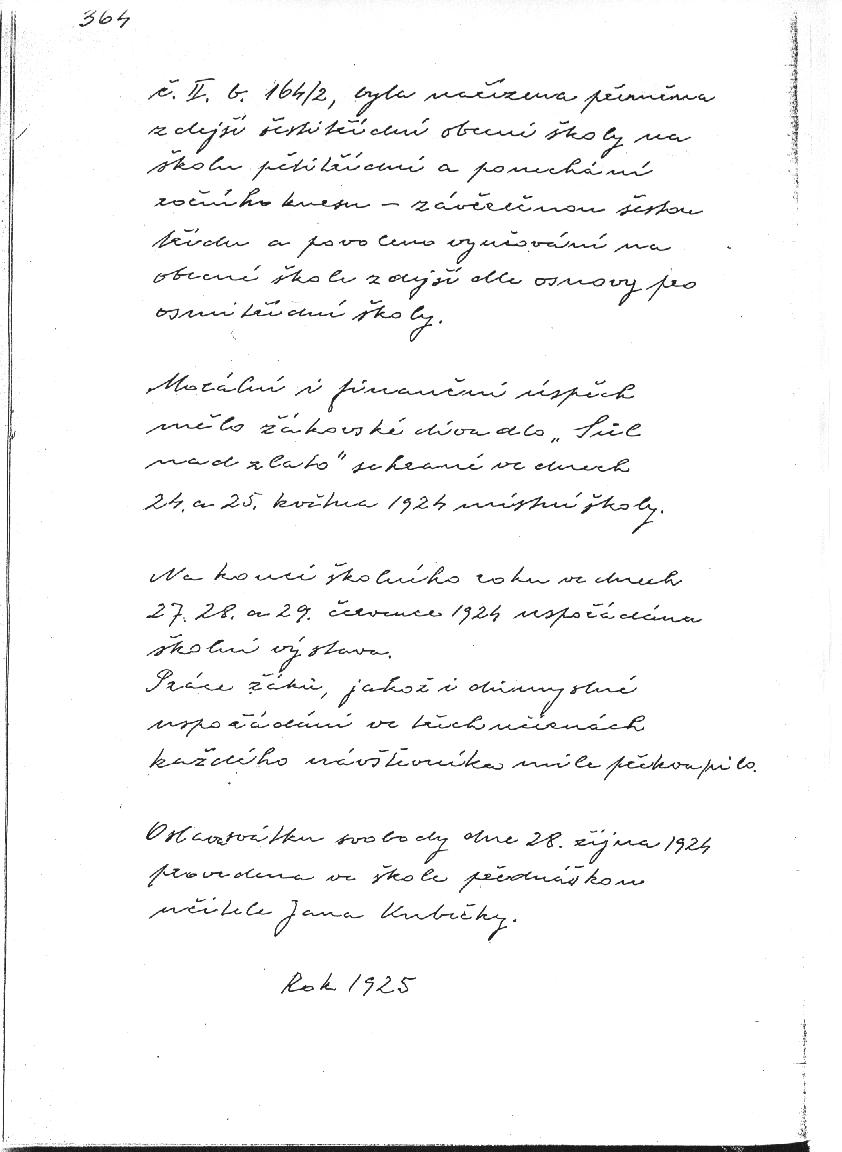 364
č. II. b. 164/2, byla nařízena přeměna
zdejší šestitřídní obecné školy na
školu pětitřídní a ponechání
ročního kursu – závěrečnou šestou
třídu a povoleno vyučování na
obecné škole zdejší dle osnovy pro
osmitřídní školy.
Morální i finanční úspěch
mělo žákovské divadlo „Sůl
nad zlato" sehrané ve dnech
24. a 25. května 1924 místní školy.
Na konci školního roku ve dnech
27. 28. a 29. července 1924 uspořádána
školní výstava.
Práce žáků, jakož i důmyslné
uspořádání ve třech učírnách
každého návštěvníka mile překvapilo.
Oslava svátku svobody dne 28. října 1924
provedena ve škole přednáškou
učitele Jana Kubíčky.
Rok 1925